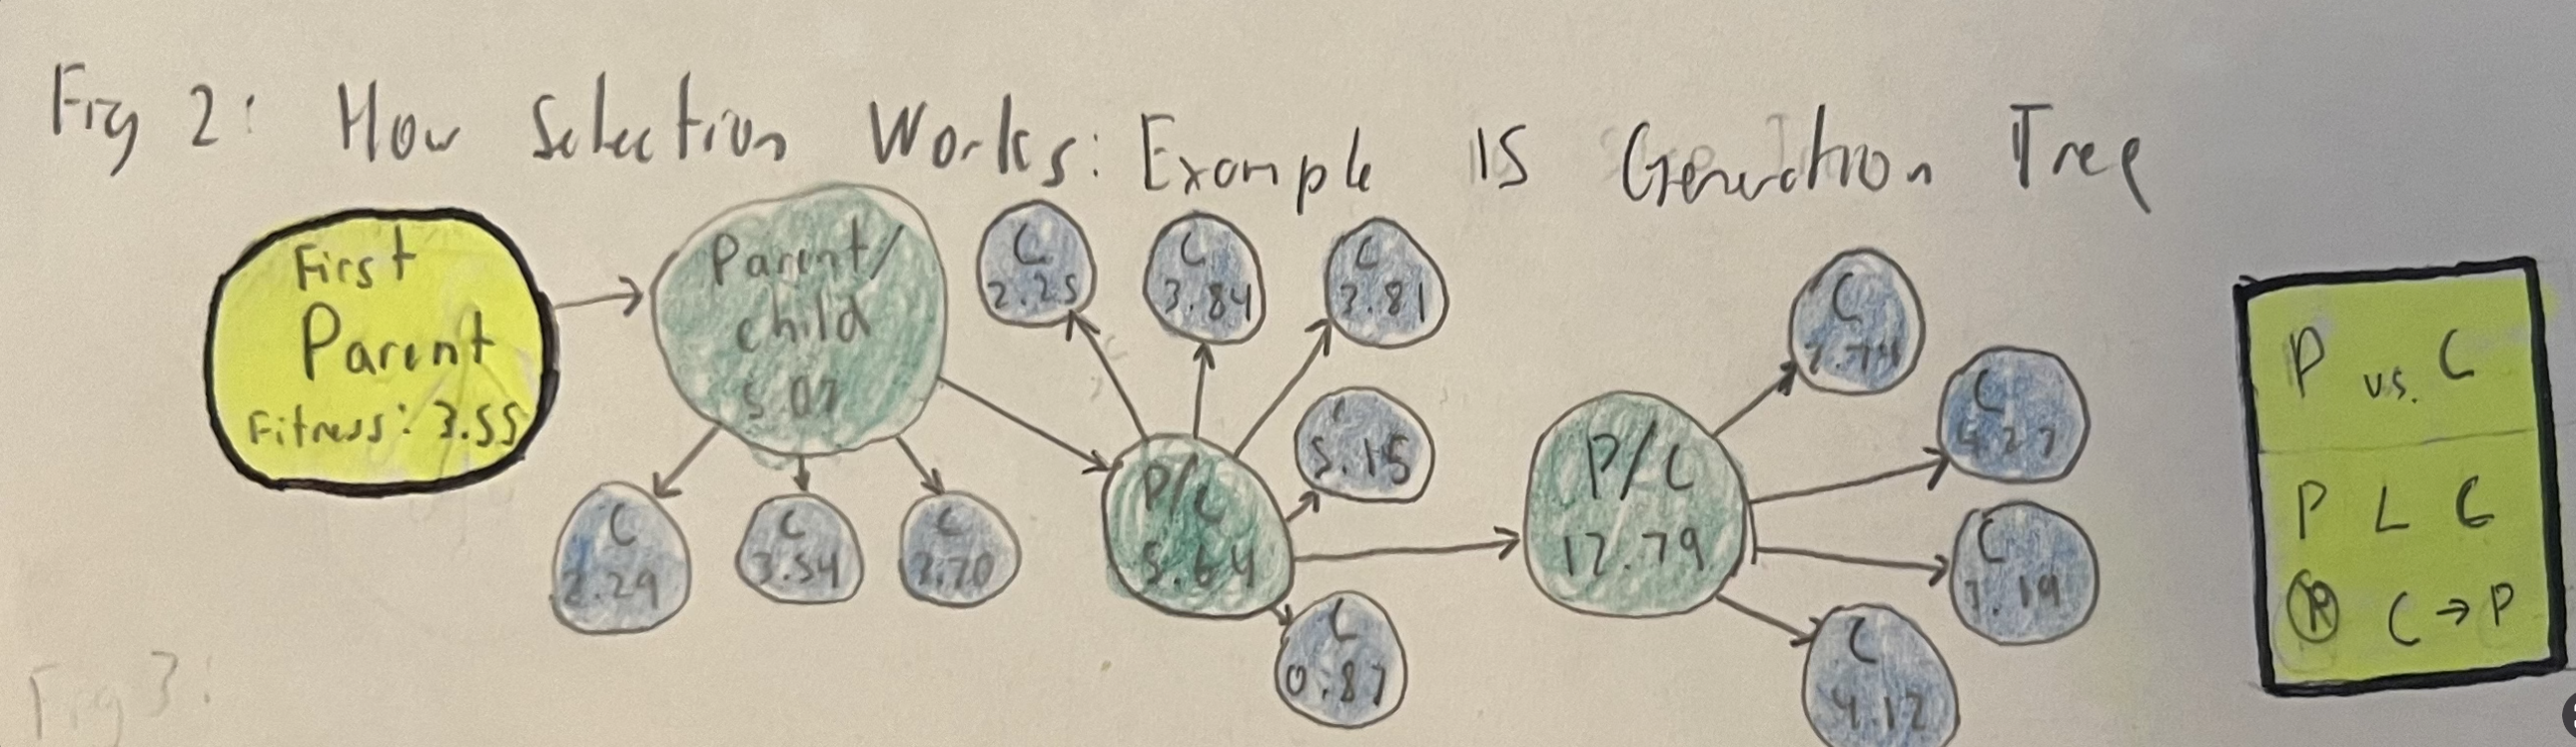 Fig 2: How Selection Works: Example 15 Generation Tree
First
Parent
Fitness: 3.55
Parent/
child
5.07
C
2.29
C
3.54
C
2.70
C
2.25
C
3.84
C
3.81
P/C
5.64
5.15
C
0.87
P/C
12.79
C
C
4.27
C
C
4.12
P vs. C
P L C
R C → P
Fig 3: